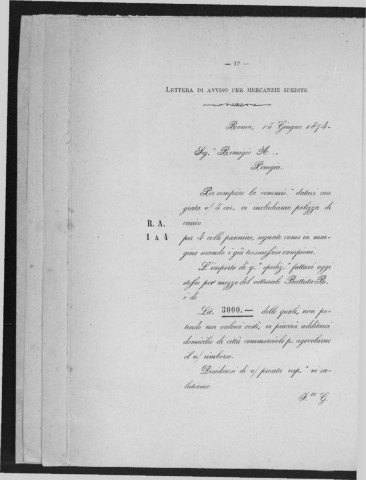 — 17 —
LETTERA DI AVVISO PER MERCANZIE SPEDITE
Roma, 15 Giugno 1874.
Sig.r Remigio A...
Perugia.
Per compiere la commiss.e dataci con
grata v/ 3 cor. vi includiamo polizza di
carico
R. A.
1 A 4
per 4 colli pannine, segnate come in mar-
gine secondo i già trasmessivi campioni.
L'importo di q.a spediz.e fattavi oggi
stesso per mezzo del vetturale Battista Ri.
è di
Lit. 3000.— delle quali, non po-
tendo noi valerci costì, vi piacerà additarci
domicilio di città commerciali p. agevolarne
il n/ rimborso.
Desiderosi di v/ pronta risp.a vi sa-
lutiamo.
F.lli G.